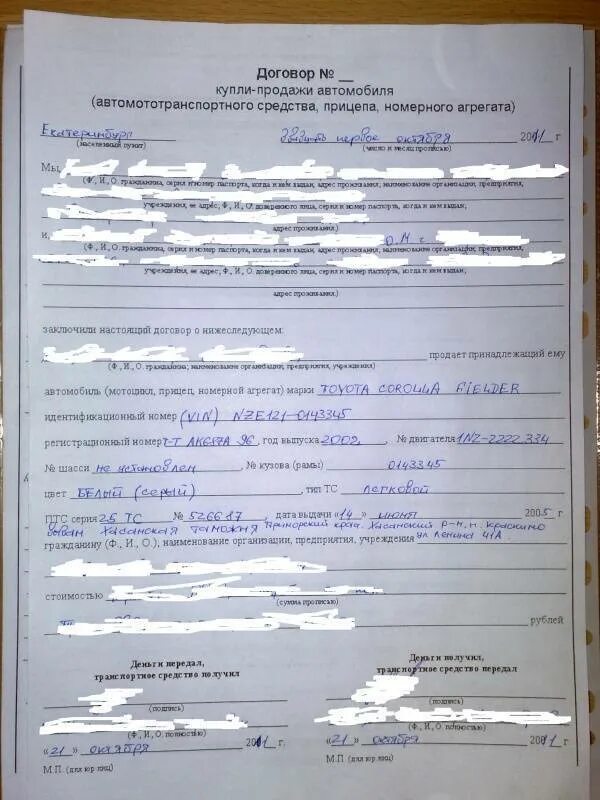 Договор № __
купли-продажи автомобиля
(автомототранспортного средства, прицепа, номерного агрегата)
Екатеринбург двадцать первое октября 2011 г
(населенный пункт) (число и месяц прописью)
Мы,
(Ф., И., О. гражданина, серия и номер паспорта, когда и кем выдан, адрес проживания, наименование организации, предприятия,
учреждения, ее адрес, Ф., И., О. доверенного лица, серия и номер паспорта, когда и кем выдан,
адрес проживания.)
и,
(Ф., И., О. гражданина, серия и номер паспорта, когда и кем выдан, адрес проживания, наименование организации, предприятия,
учреждения, ее адрес, Ф., И., О. доверенного лица, серия и номер паспорта, когда и кем выдан,
адрес проживания.)
заключили настоящий договор о нижеследующем:
продает принадлежащий ему
(Ф., И., О. гражданина, наименование организации, предприятия, учреждения)
автомобиль (мотоцикл, прицеп, номерной агрегат) марки TOYOTA COROLLA FIELDER
идентификационный номер (VIN) NZE121-0143345
регистрационный номер Т-Т АК687А 96, год выпуска 2002, № двигателя 1NZ-2222 334
№ шасси не установлен № кузова (рамы) 0143345
цвет БЕЛЫЙ (серый), тип ТС легковой
ПТС серия 25 ТС № 526687, дата выдачи «14» июня 2005 г
выдан Хасанская таможня Приморский край Хасанский р-н, п. Краскино
гражданину (Ф., И., О.), наименование организации, предприятия, учреждения ул Ленина 41А
стоимостью
(сумма прописью)
рублей
Деньги передал, Деньги получил,
транспортное средство получил транспортное средство передал
(подпись) (подпись)
(Ф., И., О. полностью) (Ф., И., О. полностью)
«21» октября 2011 г. «21» октября 2011 г.
М.П. (для юр лиц) М.П. (для юр лиц)